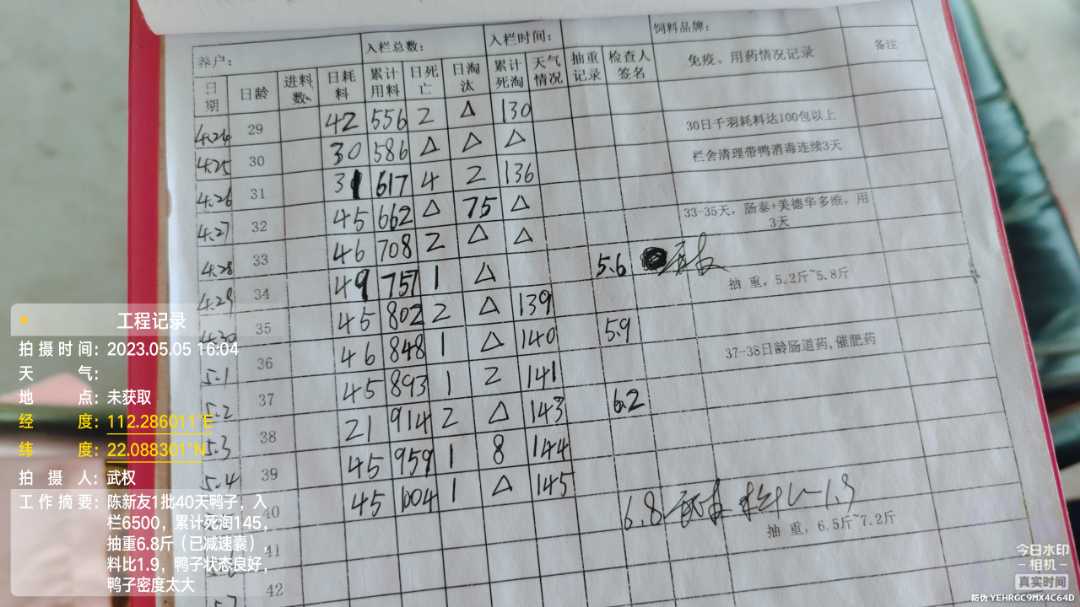 养户： 入栏总数： 入栏时间： 饲料品牌：
日期 日龄 进料数 日耗料 累计用料 日死亡 日淘汰 累计死淘 天气情况 抽重记录 检查人签名 免疫、用药情况记录 备注
4.24 29 42 556 2 △ 130
30日千羽耗料达100包以上
4.25 30 30 586 △ △ △
栏舍清理带鸭消毒连续3天
4.26 31 31 617 4 2 136
4.27 32 45 662 △ 75 △
33-35天，肠泰+美德华多维，用3天
4.28 33 46 708 2 △ △
4.29 34 49 757 1 △ 5.6
抽 重，5.2斤~5.8斤
4.30 35 45 802 2 △ 139
5.1 36 46 848 1 △ 140 5.9
37-38日龄肠道药，催肥药
5.2 37 45 893 1 2 141
5.3 38 21 914 2 △ 143 6.2
5.4 39 45 959 1 8 144
40 45 1004 1 △ 145 6.8 1.9
抽 重，6.5斤~7.2斤
41
42
工程记录
拍摄时间：2023.05.05 16:04
天 气：
地 点：未获取
经 度：112.286011°E
纬 度：22.088301°N
拍 摄 人：武权
工作摘要：陈新友1批40天鸭子，入
栏6500，累计死淘145，
抽重6.8斤（已减速囊），
料比1.9，鸭子状态良好，
鸭子密度太大
今日水印
-相机-
真实时间
防伪 YEHRGC9MX4C64D